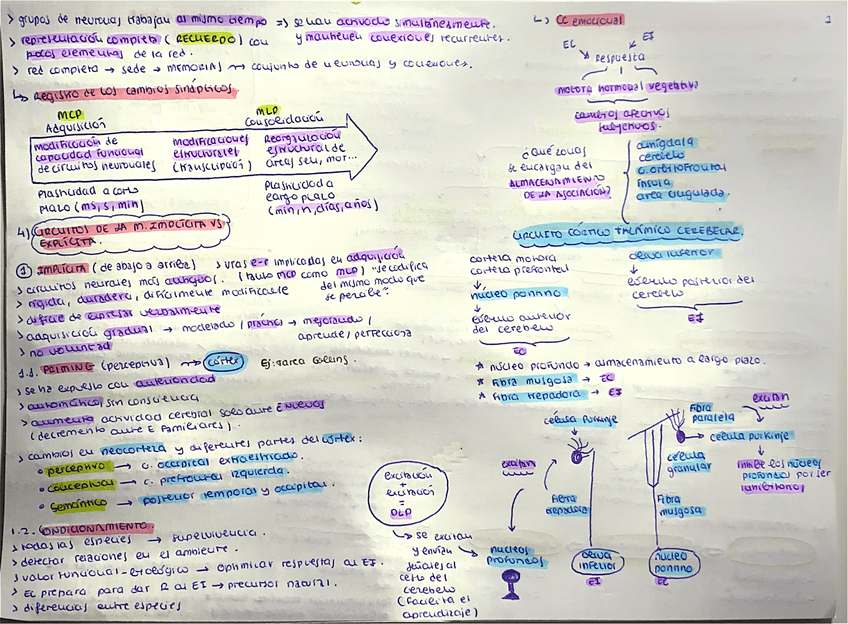 > grupos de neuronas trabajan al mismo tiempo => se van activado simultáneamente.
> representación completa (RECUERDO) con y mantienen conexiones recurrentes.
pocos elementos de la red.
> red completa → sede → MEMORIAS → conjunto de neuronas y conexiones.
↳ Registro de los cambios sinápticos.
MCP MLP
Adquisición Consolidación
modificación de capacidad funcional de circuitos neuronales
modificaciones estructurales (transcripción)
Reorganización estructural de áreas sen, mor...
Plasticidad a corto plazo (ms, s, min)
Plasticidad a largo plazo (min, h, días, años)
4) CIRCUITOS DE LA M. IMPLÍCITA VS EXPLÍCITA.
① IMPLÍCITA (de abajo a arriba)
> circuitos neurales más antiguos.
> rígida, duradera, difícilmente modificable
> difícil de expresar verbalmente
> vías e-r implicadas en adquisición
(tanto MCP como MLP) "se codifica
del mismo modo que
se percibe".
> adquisición gradual → modelado / práctica → mejorando /
aprende / perfecciona
> no voluntad
1.1. PRIMING (perceptiva) → córtex Ej: tarea Gollins.
> se ha expuesto con anterioridad
> automático, sin consciencia
> aumenta actividad cerebral solo ante E nuevos
(decremento ante E familiares).
> cambios en neocorteza y diferentes partes del córtex:
• perceptivo → c. occipital extraestriado.
• conceptual → c. prefrontal izquierda.
• semántico → posterior temporal y occipital.
1.2. CONDICIONAMIENTO.
> todas las especies → supervivencia.
> detectar relaciones en el ambiente.
> valor funcional-etológico → optimizar respuestas al EI.
> EC prepara para dar R al EI → precursor natural.
> diferencias entre especies
excitación
+
excitación
=
DLP
↳ se excitan
y envían
señales al
resto del
cerebelo
(facilita el
aprendizaje)
↳ CC emocional
1
EC EI
Respuesta
motora hormonal vegetativa
cambios afectivos
subjetivos.
¿Qué zonas
se encargan del
ALMACENAMIENTO
DE LA ASOCIACIÓN?
amígdala
cerebelo
c. orbitofrontal
ínsula
área cingulada.
CIRCUITO CÓRTICO TALÁMICO CEREBELAR.
corteza motora
corteza prefrontal
↓
núcleo pontino
↓
lóbulo anterior
del cerebelo
EC
oliva inferior
↓
lóbulo posterior del
cerebelo
EI
* núcleo profundo → almacenamiento a largo plazo.
* fibra musgosa → EC
* fibra trepadora → EI
célula Purkinje
excitan
fibra
trepadora
núcleos
profundos
oliva
inferior
EI
fibra
paralela
excitan
→ célula Purkinje
célula
granular
inhibe los núcleos
profundos por ser
inhibitorias
fibra
musgosa
núcleo
pontino
EC